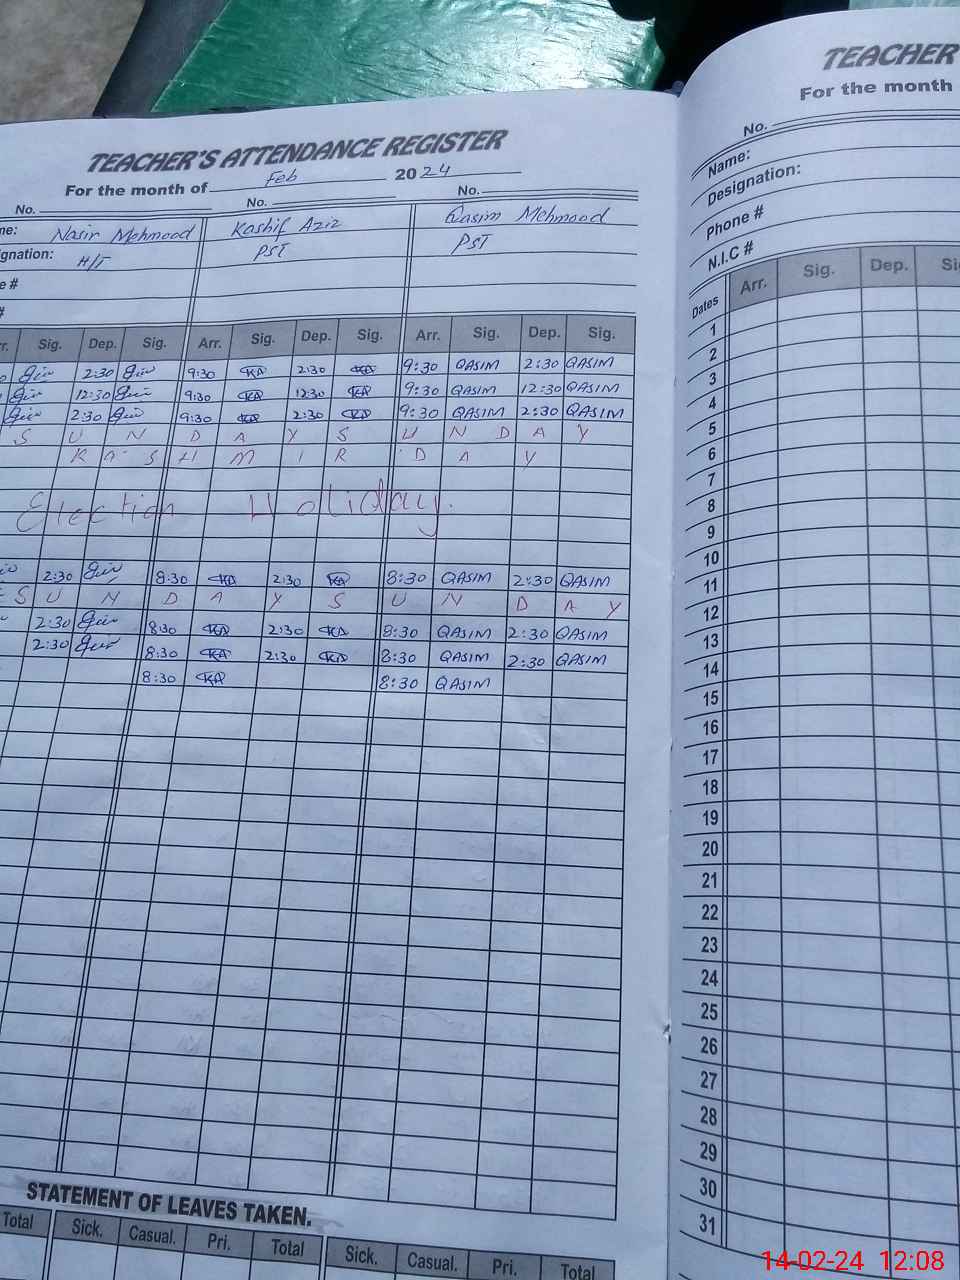 TEACHER'S ATTENDANCE REGISTER
For the month of Feb 2024
No. No. No.
me: Nasir Mehmood Kashif Aziz Qasim Mehmood
gnation: H/T PST PST
e #
#
rr. Sig. Dep. Sig. Arr. Sig. Dep. Sig. Arr. Sig. Dep. Sig.
2:30 9:30 KA 2:30 KA 9:30 QASIM 2:30 QASIM
12:30 9:30 KA 12:30 KA 9:30 QASIM 12:30 QASIM
2:30 9:30 KA 2:30 KA 9:30 QASIM 2:30 QASIM
S U N D A Y S U N D A Y
K A S H M I R D A Y
Election Holiday.
2:30 8:30 KA 2:30 KA 8:30 QASIM 2:30 QASIM
S U N D A Y S U N D A Y
2:30 8:30 KA 2:30 KA 8:30 QASIM 2:30 QASIM
2:30 8:30 KA 2:30 KA 8:30 QASIM 2:30 QASIM
8:30 KA 8:30 QASIM
STATEMENT OF LEAVES TAKEN.
Total Sick. Casual. Pri. Total Sick. Casual. Pri. Total
TEACHER
For the month
No.
Name:
Designation:
Phone #
N.I.C #
Dates Arr. Sig. Dep. Si
1
2
3
4
5
6
7
8
9
10
11
12
13
14
15
16
17
18
19
20
21
22
23
24
25
26
27
28
29
30
31
14-02-24 12:08